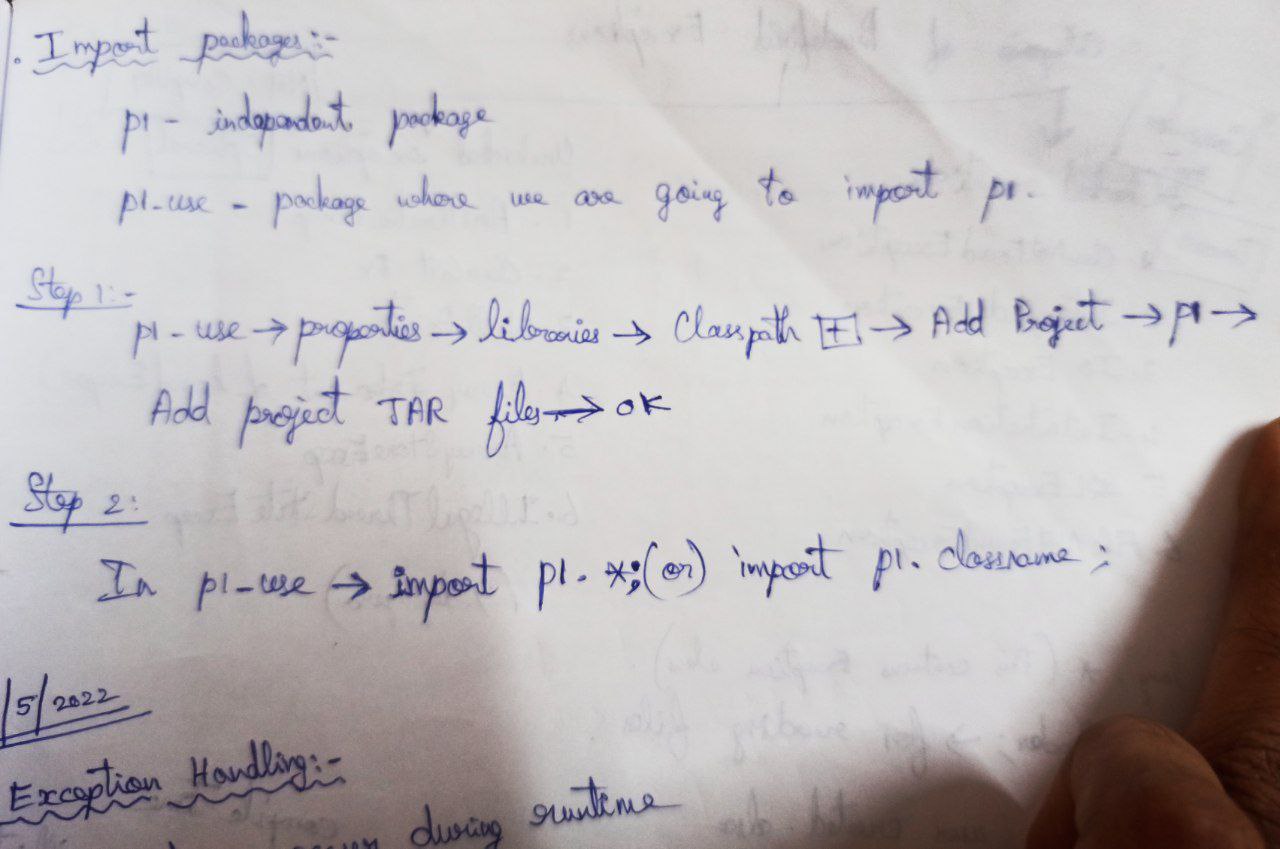 . Import packages:-
p1 - independent package
p1-use - package where we are going to import p1.
Step 1:-
p1 - use → properties → libraries → Classpath [+] → Add Project → p1 →
Add project JAR files → OK
Step 2:
In p1-use → import p1. *; (or) import p1. classname ;
/5/2022
Exception Handling:-
during runtime